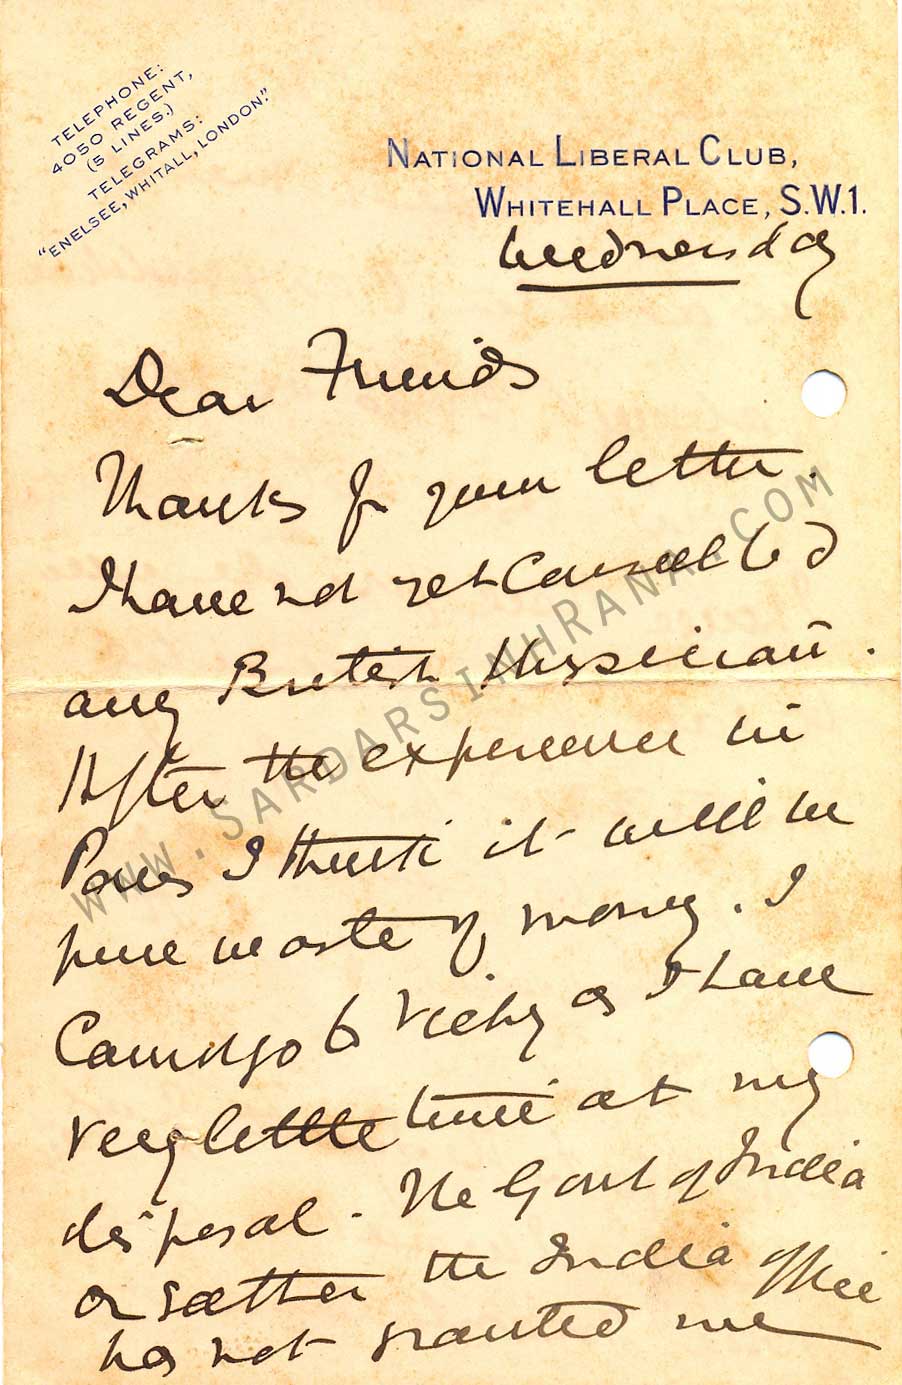 TELEPHONE:
4050 REGENT,
(5 LINES.)
TELEGRAMS:
"ENELSEE, WHITALL, LONDON."
NATIONAL LIBERAL CLUB,
WHITEHALL PLACE, S.W.1.
Wednesday
Dear Friends
Thanks for your letter.
I have not yet Consulted
any British Physician.
After the experience in
Paris I think it will be
pure waste of money. I
Cannot go to Vichy as I have
very little time at my
disposal. The Govt of India
or rather the India Office
has not granted me
WWW.SARDARSINHRANA.COM